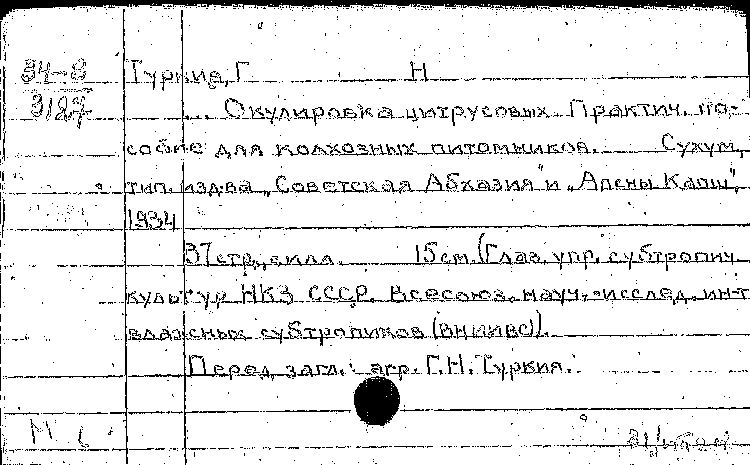 34-8 Туркия, Г. Н
3127 ... Окулировка цитрусовых. Практич. по-
собие для колхозных питомников. Сухум,
тип. изд-ва „Советская Абхазия" и „Апсны Капш",
1934
37 стр., с илл. 15 см. (Глав. упр. субтропич.
культур НКЗ СССР. Всесоюз. науч.-исслед. ин-т
влажных субтропиков (ВНИИВС)).
Перед загл.: агр. Г.Н. Туркия.
М